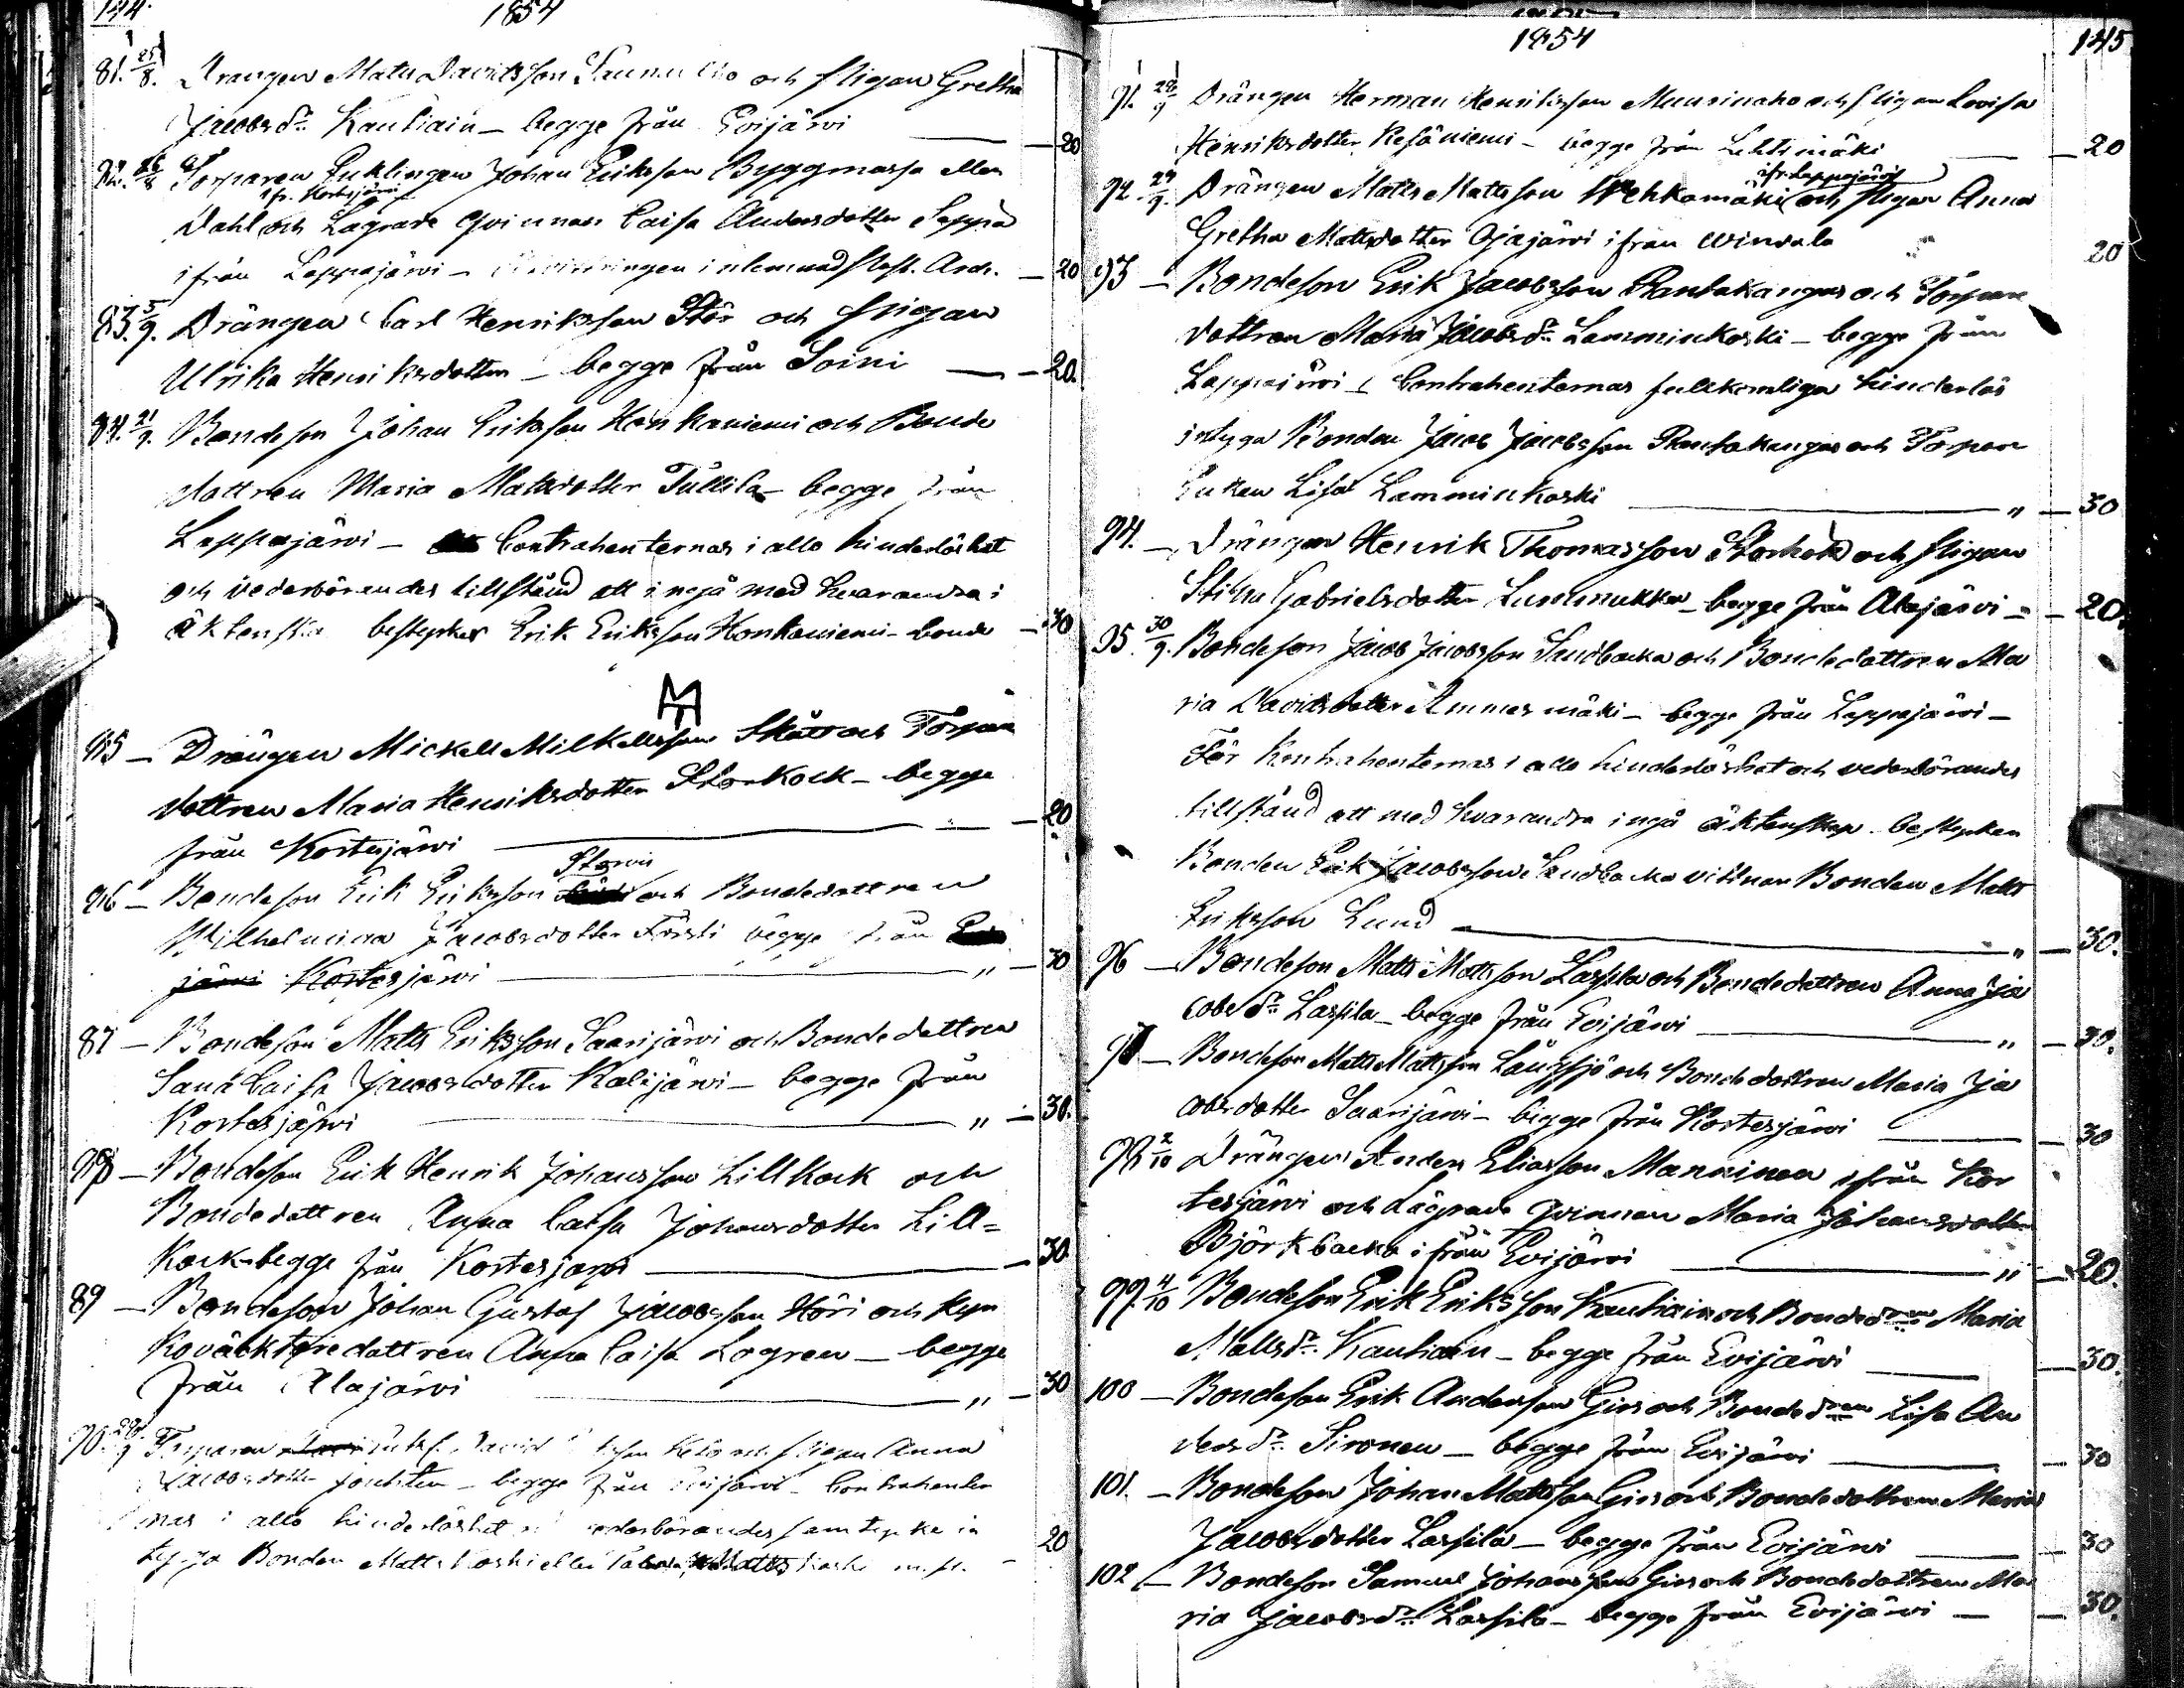 144.
1854
81. 25/8. Drängen Matts Davidsson Saunu aho och Pigan Gretha
Jacobsdr. Kautiain – begge från Evijärvi — 20
82. Torparen Enklingen Johan Eriksson Byggmassa eller
ifr. Kortesjärvi
Dahl och Lägrade Qvinnan Caisa Andersdotter Seppä
ifrån Lappajärvi – inlemnad — 20
83. 5/9. Drängen Carl Henriksson Stör och Pigan
Ulrika Henriksdotter – begge från Soini — 20.
84. 21/9. Bondeson Johan Eriksson Honkaniemi och Bonde
dottren Maria Mattsdotter Tullila – begge från
Lappajärvi – Contrahenternas i allo hinderlöshet
och vederbörandes tillstånd att ingå med hvarandra i
äktenska bestyrker Erik Eriksson Honkaniemi – bonde — 30
85 – Drängen Mickell Mickellsson Skatt och Torpare
dottren Maria Henriksdotter Storkock – begge
från Kortesjärvi — 20
86 – Bondeson Erik Eriksson Storvis och Bondedottren
Wilhelmina Jacobsdotter Försti begge från
järvi Kortesjärvi " — 30
87 – Bondeson Matts Eriksson Saarijärvi och Bondedottren
Sanna Caisa Jacobsdotter Kalijärvi – begge från
Kortesjärvi " — 30.
88 – Bondeson Erik Henrik Johansson Lillkock och
Bondedottren Anna Caisa Johansdotter Lill=
kock – begge från Kortesjärvi — 30
89 – Bondeson Johan Gustaf Jacobsson Höri och Kyr
kováktaredottren Anna Caisa Logren – begge
från Alajärvi " — 30
90. Torparen David Keto och Pigan Anna
Jacobsdotter – begge från Evijärvi – Contrahenter
nas i allo hinderlöshet vederbörandes samtycke in
tyga Bonden Matts Koski eller — 20
1854
145
91. 28/9 Drängen Herman Henriksson Muurinaho och Pigan Lovisa
Henriksdotter Kesäniemi – begge från Lehtimäki — 20
92. 29/9. Drängen Matts Mattsson Wehkamäki ifr. Lappajärvi och Pigan Anna
Gretha Mattsdotter Ojajärvi ifrån Windala 20
93 – Bondeson Erik Jacobsson Rantakangas och Torpare
dottren Maria Jacobsdr. Lamminkoski – begge från
Lappajärvi – Contrahenternas fullkomliga hinderlös
intyga Bonden Jacob Jacobsson Rantakangas och Torpare
Enkan Lisa Lamminkoski " — 30
94. – Drängen Henrik Thomasson Storkock och Pigan
Stina Gabrielsdotter Lummukka – begge från Alajärvi — 20.
95. 30/9. Bondeson Jacob Jacobsson Sandbacka och Bondedottren Ma
ria Davidsdotter Ammesmäki – begge från Lappajärvi –
För Kontrahenternas i allo hinderlöshet och vederbörandes
tillstånd att med hvarandra ingå äktenskap bestyrker
Bonden Erik Jacobsson Sandbacka vittnar Bonden Matts
Eriksson Lund " — 30.
96 – Bondeson Matts Mattsson Lassila och Bondedottren Anna Ja
cobsdr. Lassila – begge från Evijärvi " — 30.
97 – Bondeson Matts Mattsson Långsjö och Bondedottren Maria Ja
cobsdotter Saarijärvi – begge från Kortesjärvi — 30
98 2/10 Drängen Anders Eliasson Manninen ifrån Kor
tesjärvi och Lägrade Qvinnan Maria Johansdotter
Björkbacka ifrån Evijärvi " — 20.
99. 4/10 Bondeson Erik Eriksson Kautiain och Bondedren Maria
Mattsdr. Kautiain – begge från Evijärvi — 30.
100 – Bondeson Erik Andersson Girs och Bondedren Lisa An
dersdr. Sironen – begge från Evijärvi — 30
101. – Bondeson Johan Mattsson Girs och Bondedottren Maria
Jacobsdotter Lassila – begge från Evijärvi — 30
102 – Bondeson Samuel Johansson Girs och Bondedottren Ma
ria Jacobsdr. Lassila – begge från Evijärvi — 30.